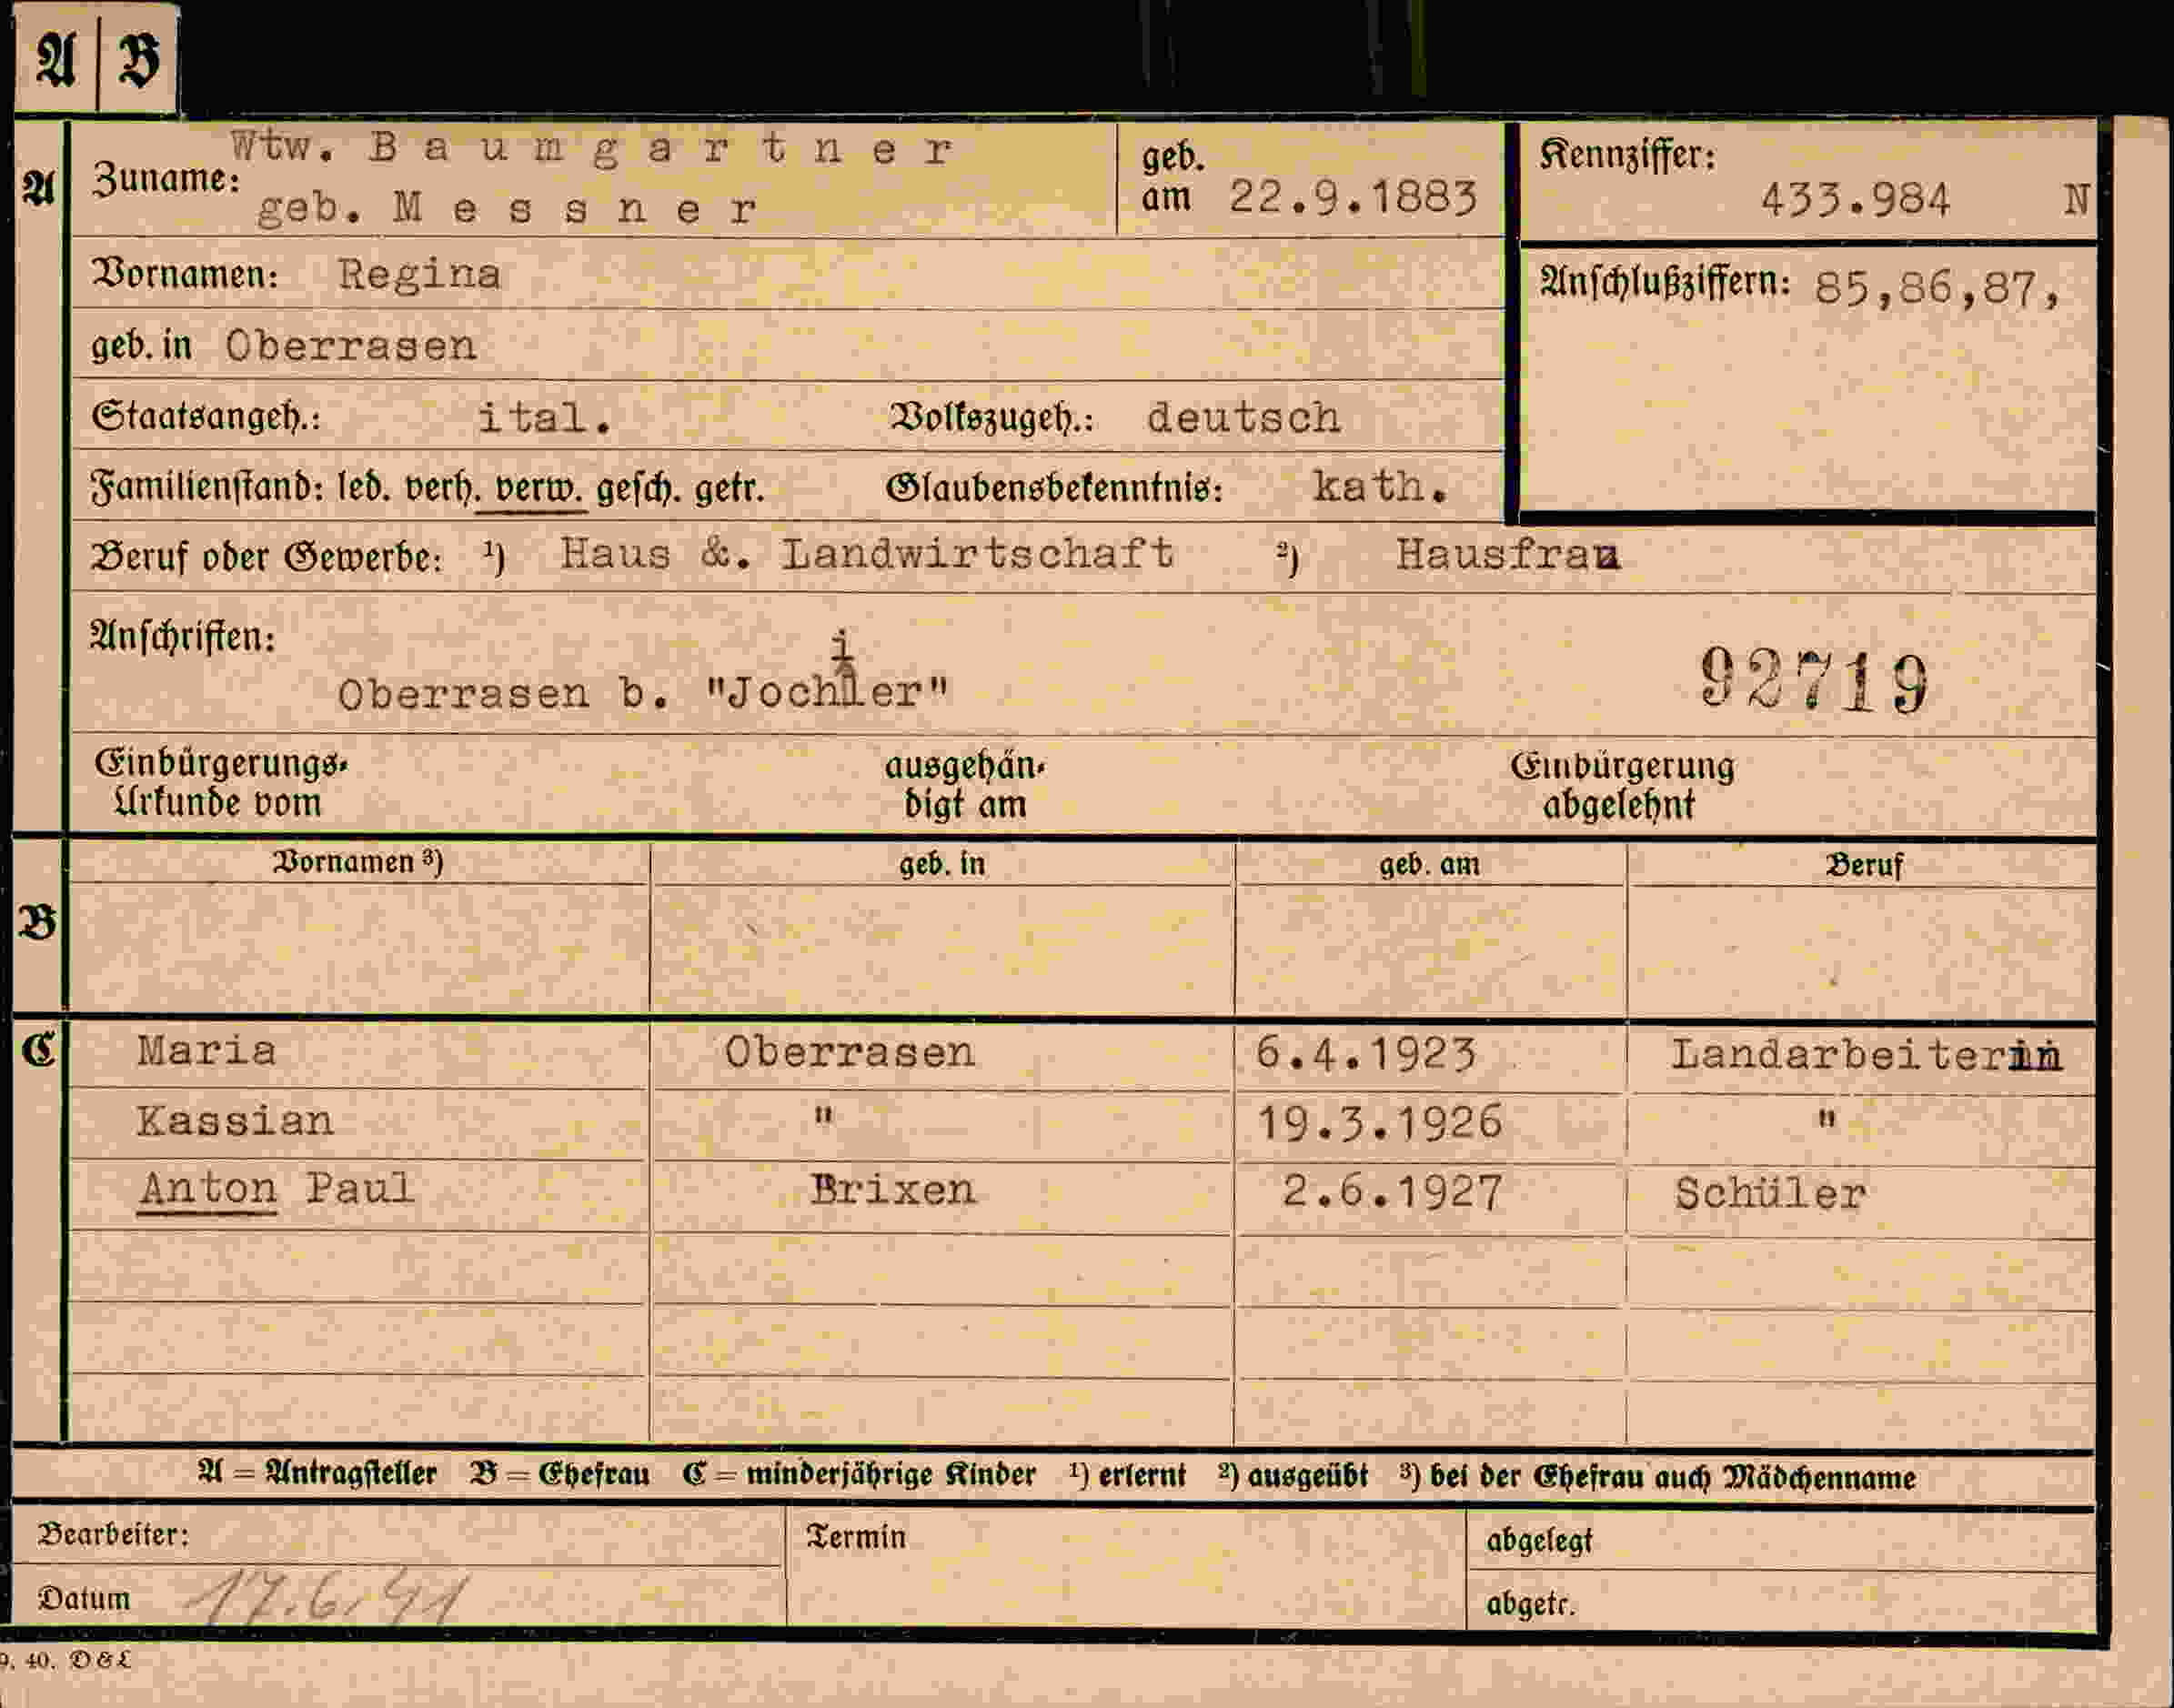 A | B
A Zuname: Wtw. Baumgartner geb. Messner geb. am 22.9.1883 Kennziffer: 433.984 N
Vornamen: Regina Anschlußziffern: 85,86,87,
geb. in Oberrasen
Staatsangeh.: ital. Volkszugeh.: deutsch
Familienstand: led. verh. verw. gesch. getr. Glaubensbekenntnis: kath.
Beruf oder Gewerbe: ¹) Haus &. Landwirtschaft ²) Hausfrau
Anschriften:
Oberrasen b. "Jochler" 92719
i
Einbürgerungs-Urkunde vom ausgehändigt am Einbürgerung abgelehnt
B Vornamen ³) geb. in geb. am Beruf
C Maria Oberrasen 6.4.1923 Landarbeiterin
Kassian " 19.3.1926 "
Anton Paul Brixen 2.6.1927 Schüler
A = Antragsteller B = Ehefrau C = minderjährige Kinder ¹) erlernt ²) ausgeübt ³) bei der Ehefrau auch Mädchenname
Bearbeiter: Termin abgelegt
Datum 17.6.41 abgetr.
9. 40. D & L